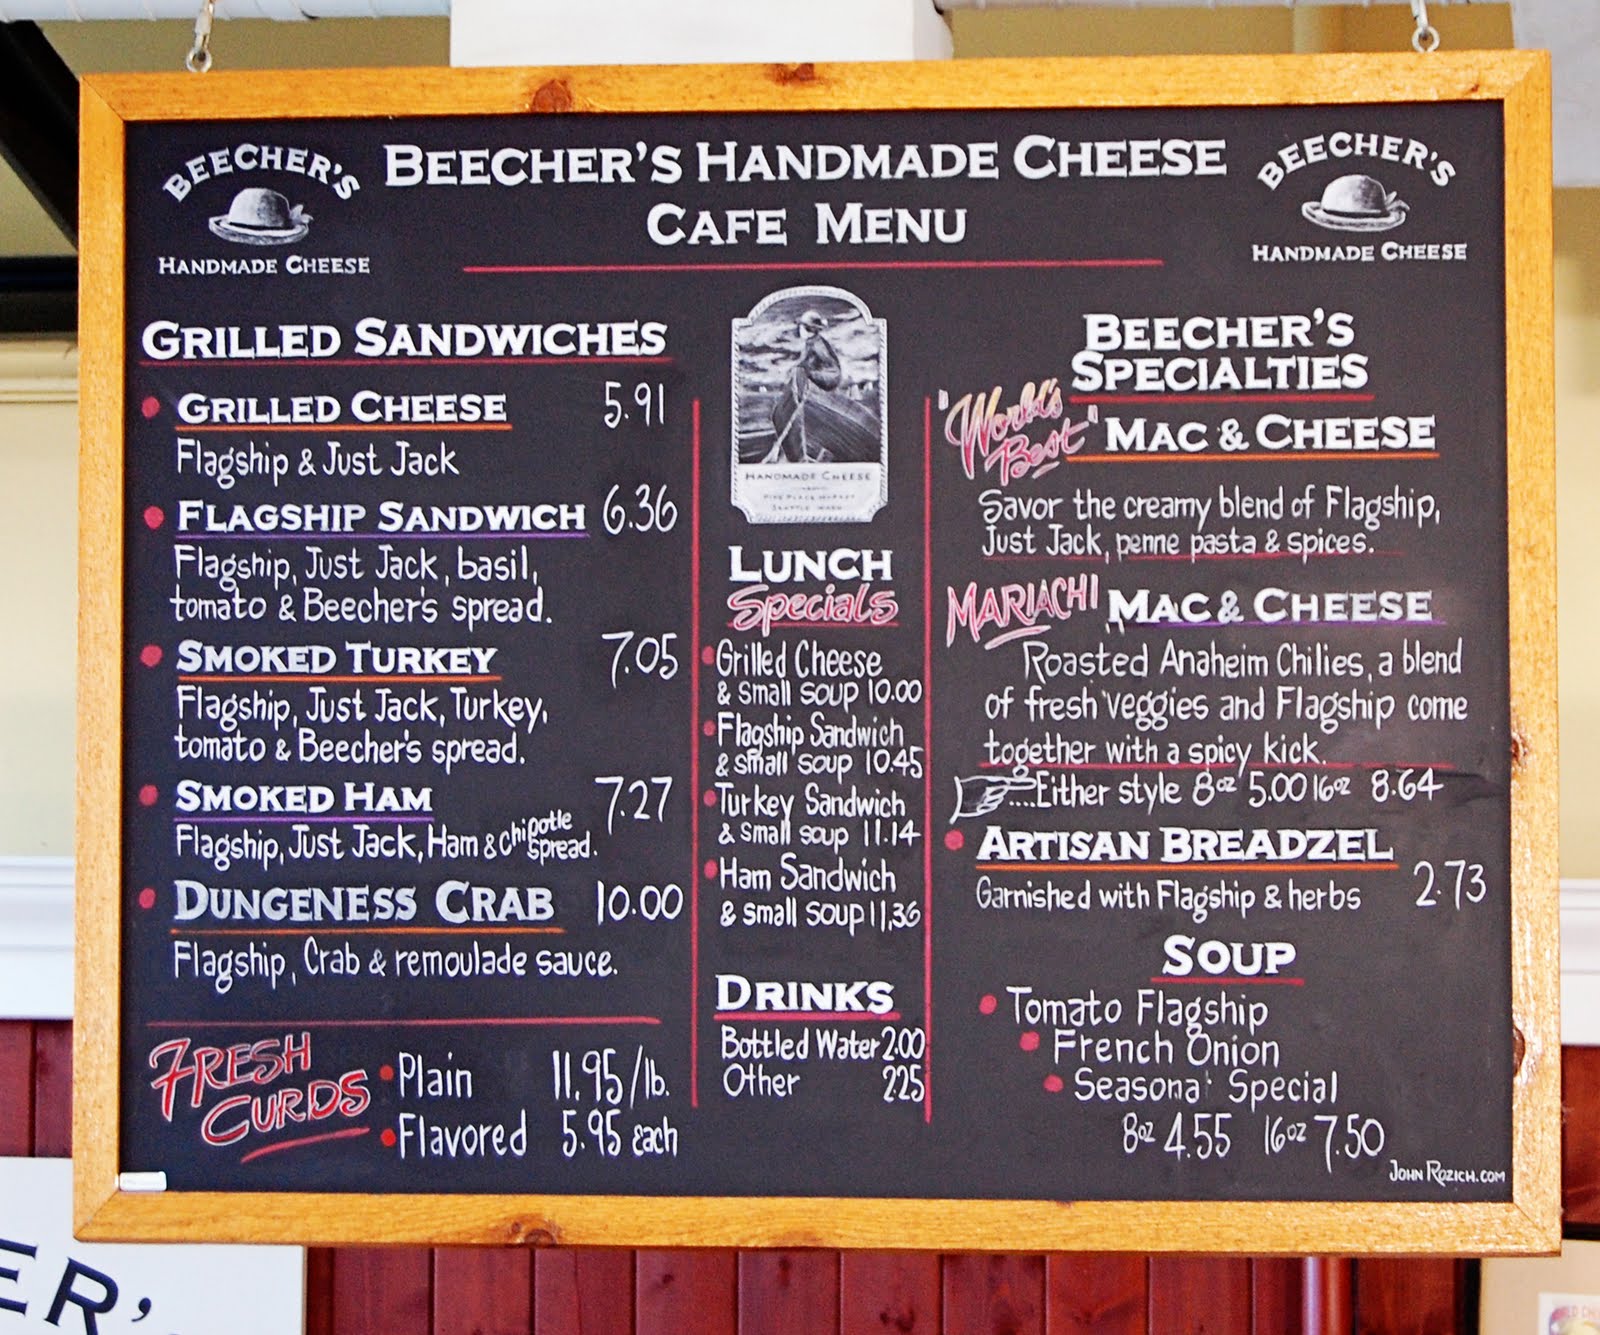 BEECHER'S
HANDMADE CHEESE
BEECHER'S HANDMADE CHEESE
CAFE MENU
BEECHER'S
HANDMADE CHEESE
GRILLED SANDWICHES
GRILLED CHEESE 5.91
Flagship & Just Jack
FLAGSHIP SANDWICH 6.36
Flagship, Just Jack, basil,
tomato & Beecher's spread.
SMOKED TURKEY 7.05
Flagship, Just Jack, Turkey,
tomato & Beecher's spread.
SMOKED HAM 7.27
Flagship, Just Jack, Ham & chipotle
spread.
DUNGENESS CRAB 10.00
Flagship, Crab & remoulade sauce.
FRESH
CURDS
Plain 11.95/lb.
Flavored 5.95 each
HANDMADE CHEESE
PIKE PLACE MARKET
SEATTLE WASH
LUNCH
Specials
Grilled Cheese
& small soup 10.00
Flagship Sandwich
& small soup 10.45
Turkey Sandwich
& small soup 11.14
Ham Sandwich
& small soup 11.36
DRINKS
Bottled Water 2.00
Other 2.25
BEECHER'S
SPECIALTIES
"World's
Best" MAC & CHEESE
Savor the creamy blend of Flagship,
Just Jack, penne pasta & spices.
MARIACHI MAC & CHEESE
Roasted Anaheim Chilies, a blend
of fresh veggies and Flagship come
together with a spicy kick.
....Either style 8oz 5.00 16oz 8.64
ARTISAN BREADZEL
Garnished with Flagship & herbs 2.73
SOUP
Tomato Flagship
French Onion
Seasonal Special
8oz 4.55 16oz 7.50
JOHN ROZICH.COM
ER'